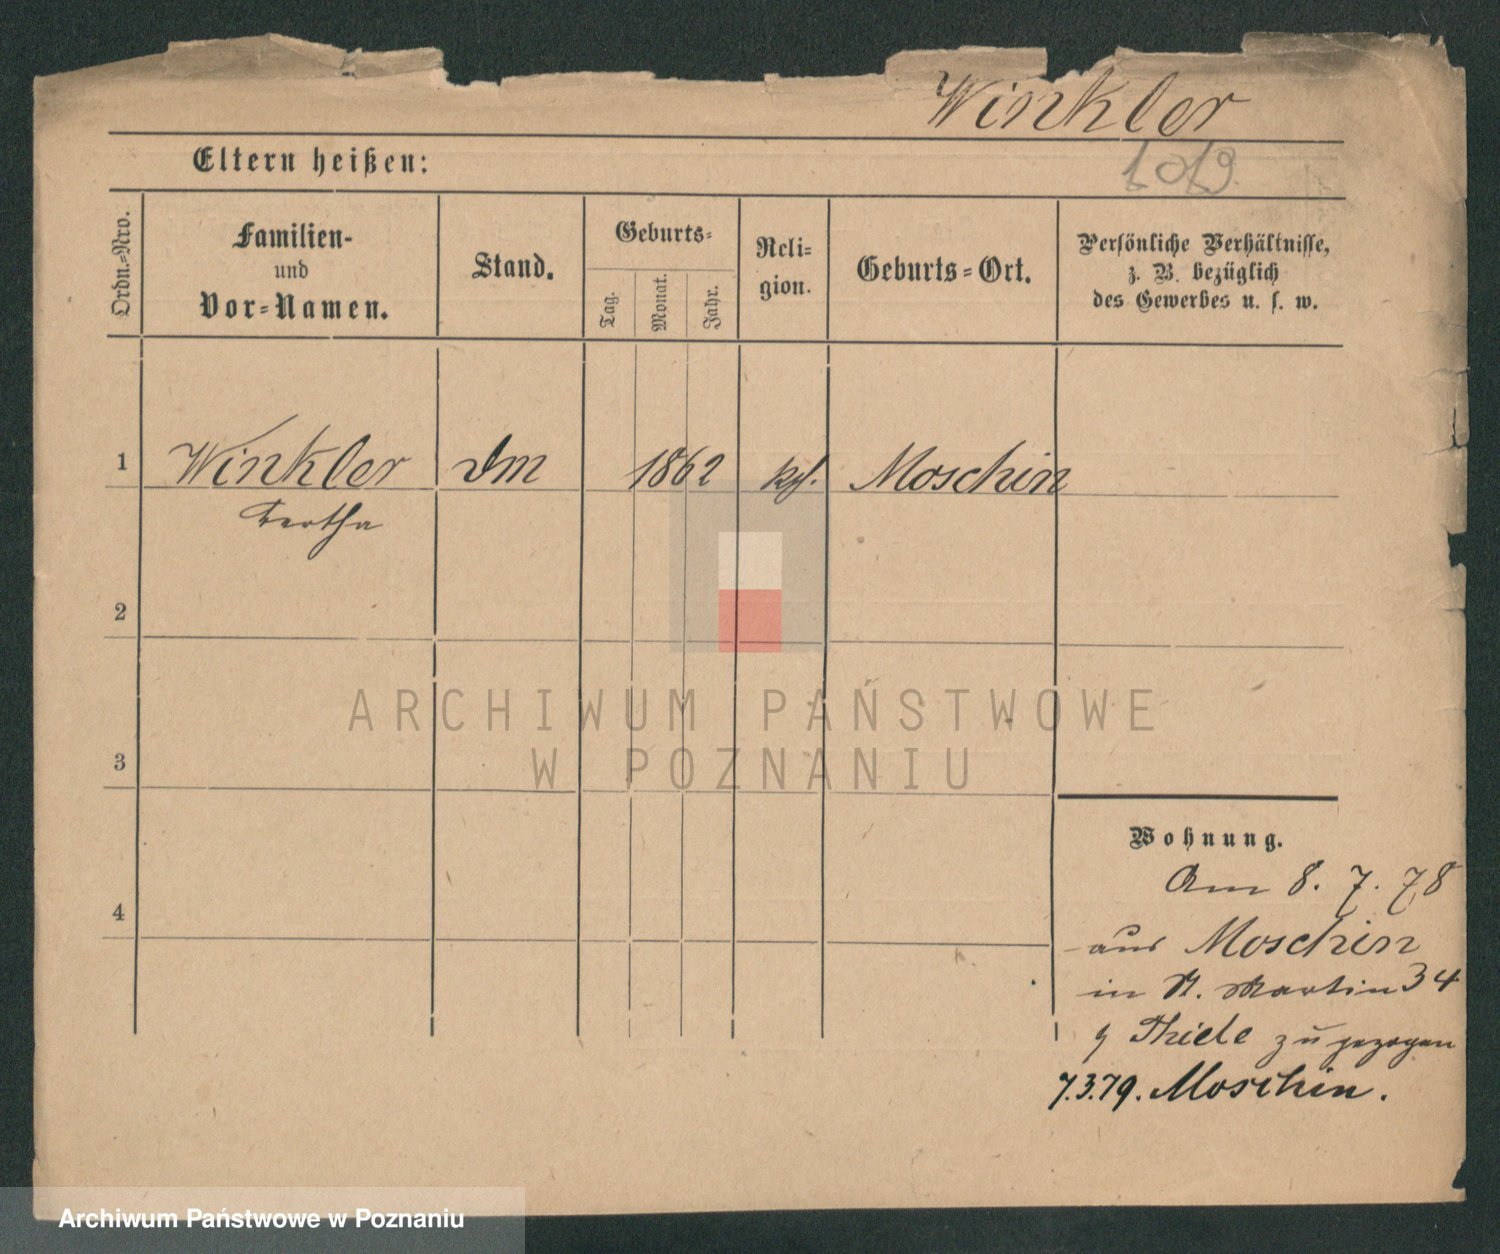 Winkler
1019.
Eltern heißen:
Ordn.-Nro.
Familien-
und
Vor-Namen.
Stand.
Geburts-
Tag.
Monat.
Jahr.
Reli-
gion.
Geburts-Ort.
Persönliche Verhältnisse,
z. B. bezüglich
des Gewerbes u. s. w.
1 Winkler Dm 1862 kf. Moschin
Bertha
2
3
4
Wohnung.
Am 8. 7. 78
aus Moschin
in St. Martin 34
Thiele zugezogen
7.3.79. Moschin.
ARCHIWUM PAŃSTWOWE
W POZNANIU
Archiwum Państwowe w Poznaniu